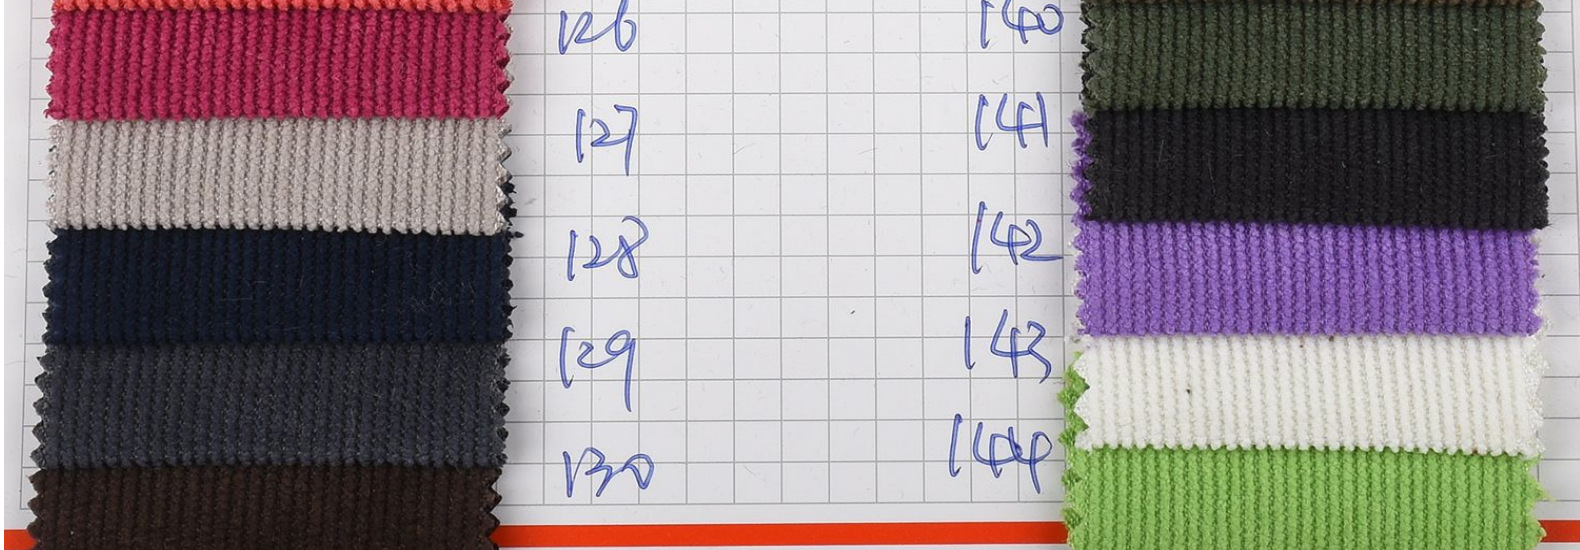 126
127
128
129
130
140
141
142
143
144